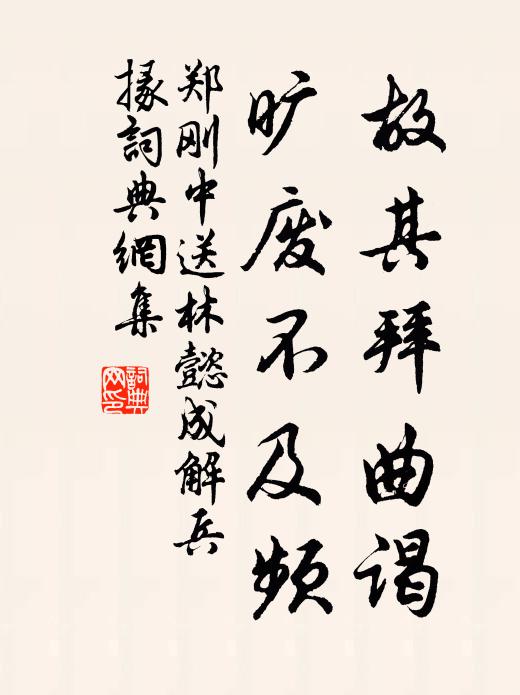 故其拜曲谒
旷废不及频
郑刚中送林懿成解兵
掾詞典網集
詞典
网印